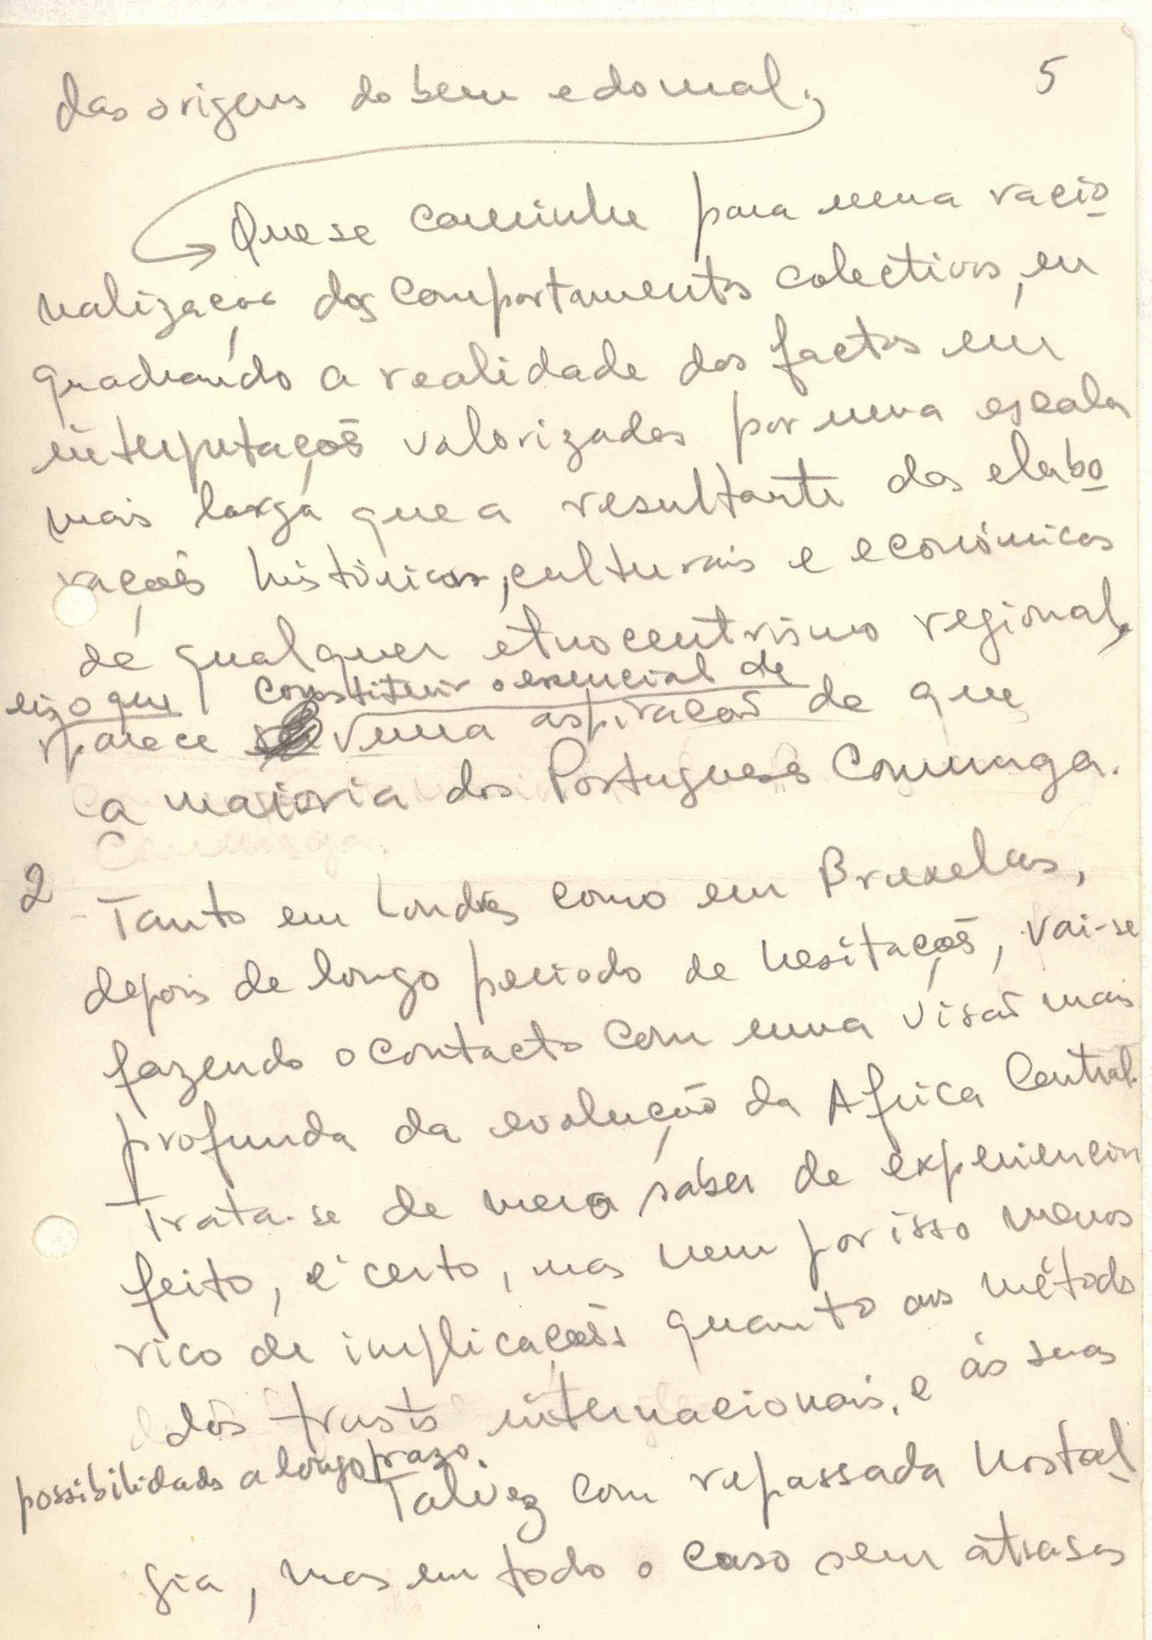 5
das origens do bem e do mal.
Que se caminhe para uma racio
nalização dos comportamentos colectivos, en
quadrando a realidade dos factos em
interpretações valorizadas por uma escala
mais larga que a resultante das elabo
rações históricas, culturais e económicas
de qualquer etnocentrismo regional,
eis o que constituir o essencial de
parece uma aspiração de que
a maioria dos Portugueses comunga.
2 Tanto em Londres como em Bruxelas,
depois de longo periodo de hesitações, vai-se
fazendo o contacto com uma visão mais
profunda da evolução da Africa Central.
Trata-se de mero saber de experiencia
feito, é certo, mas nem por isso menos
rico de implicações quanto aos método
dos trusts internacionais, e ás suas
possibilidades a longo prazo.
Talvez com repassada nostal
gia, mas em todo o caso sem atrasos